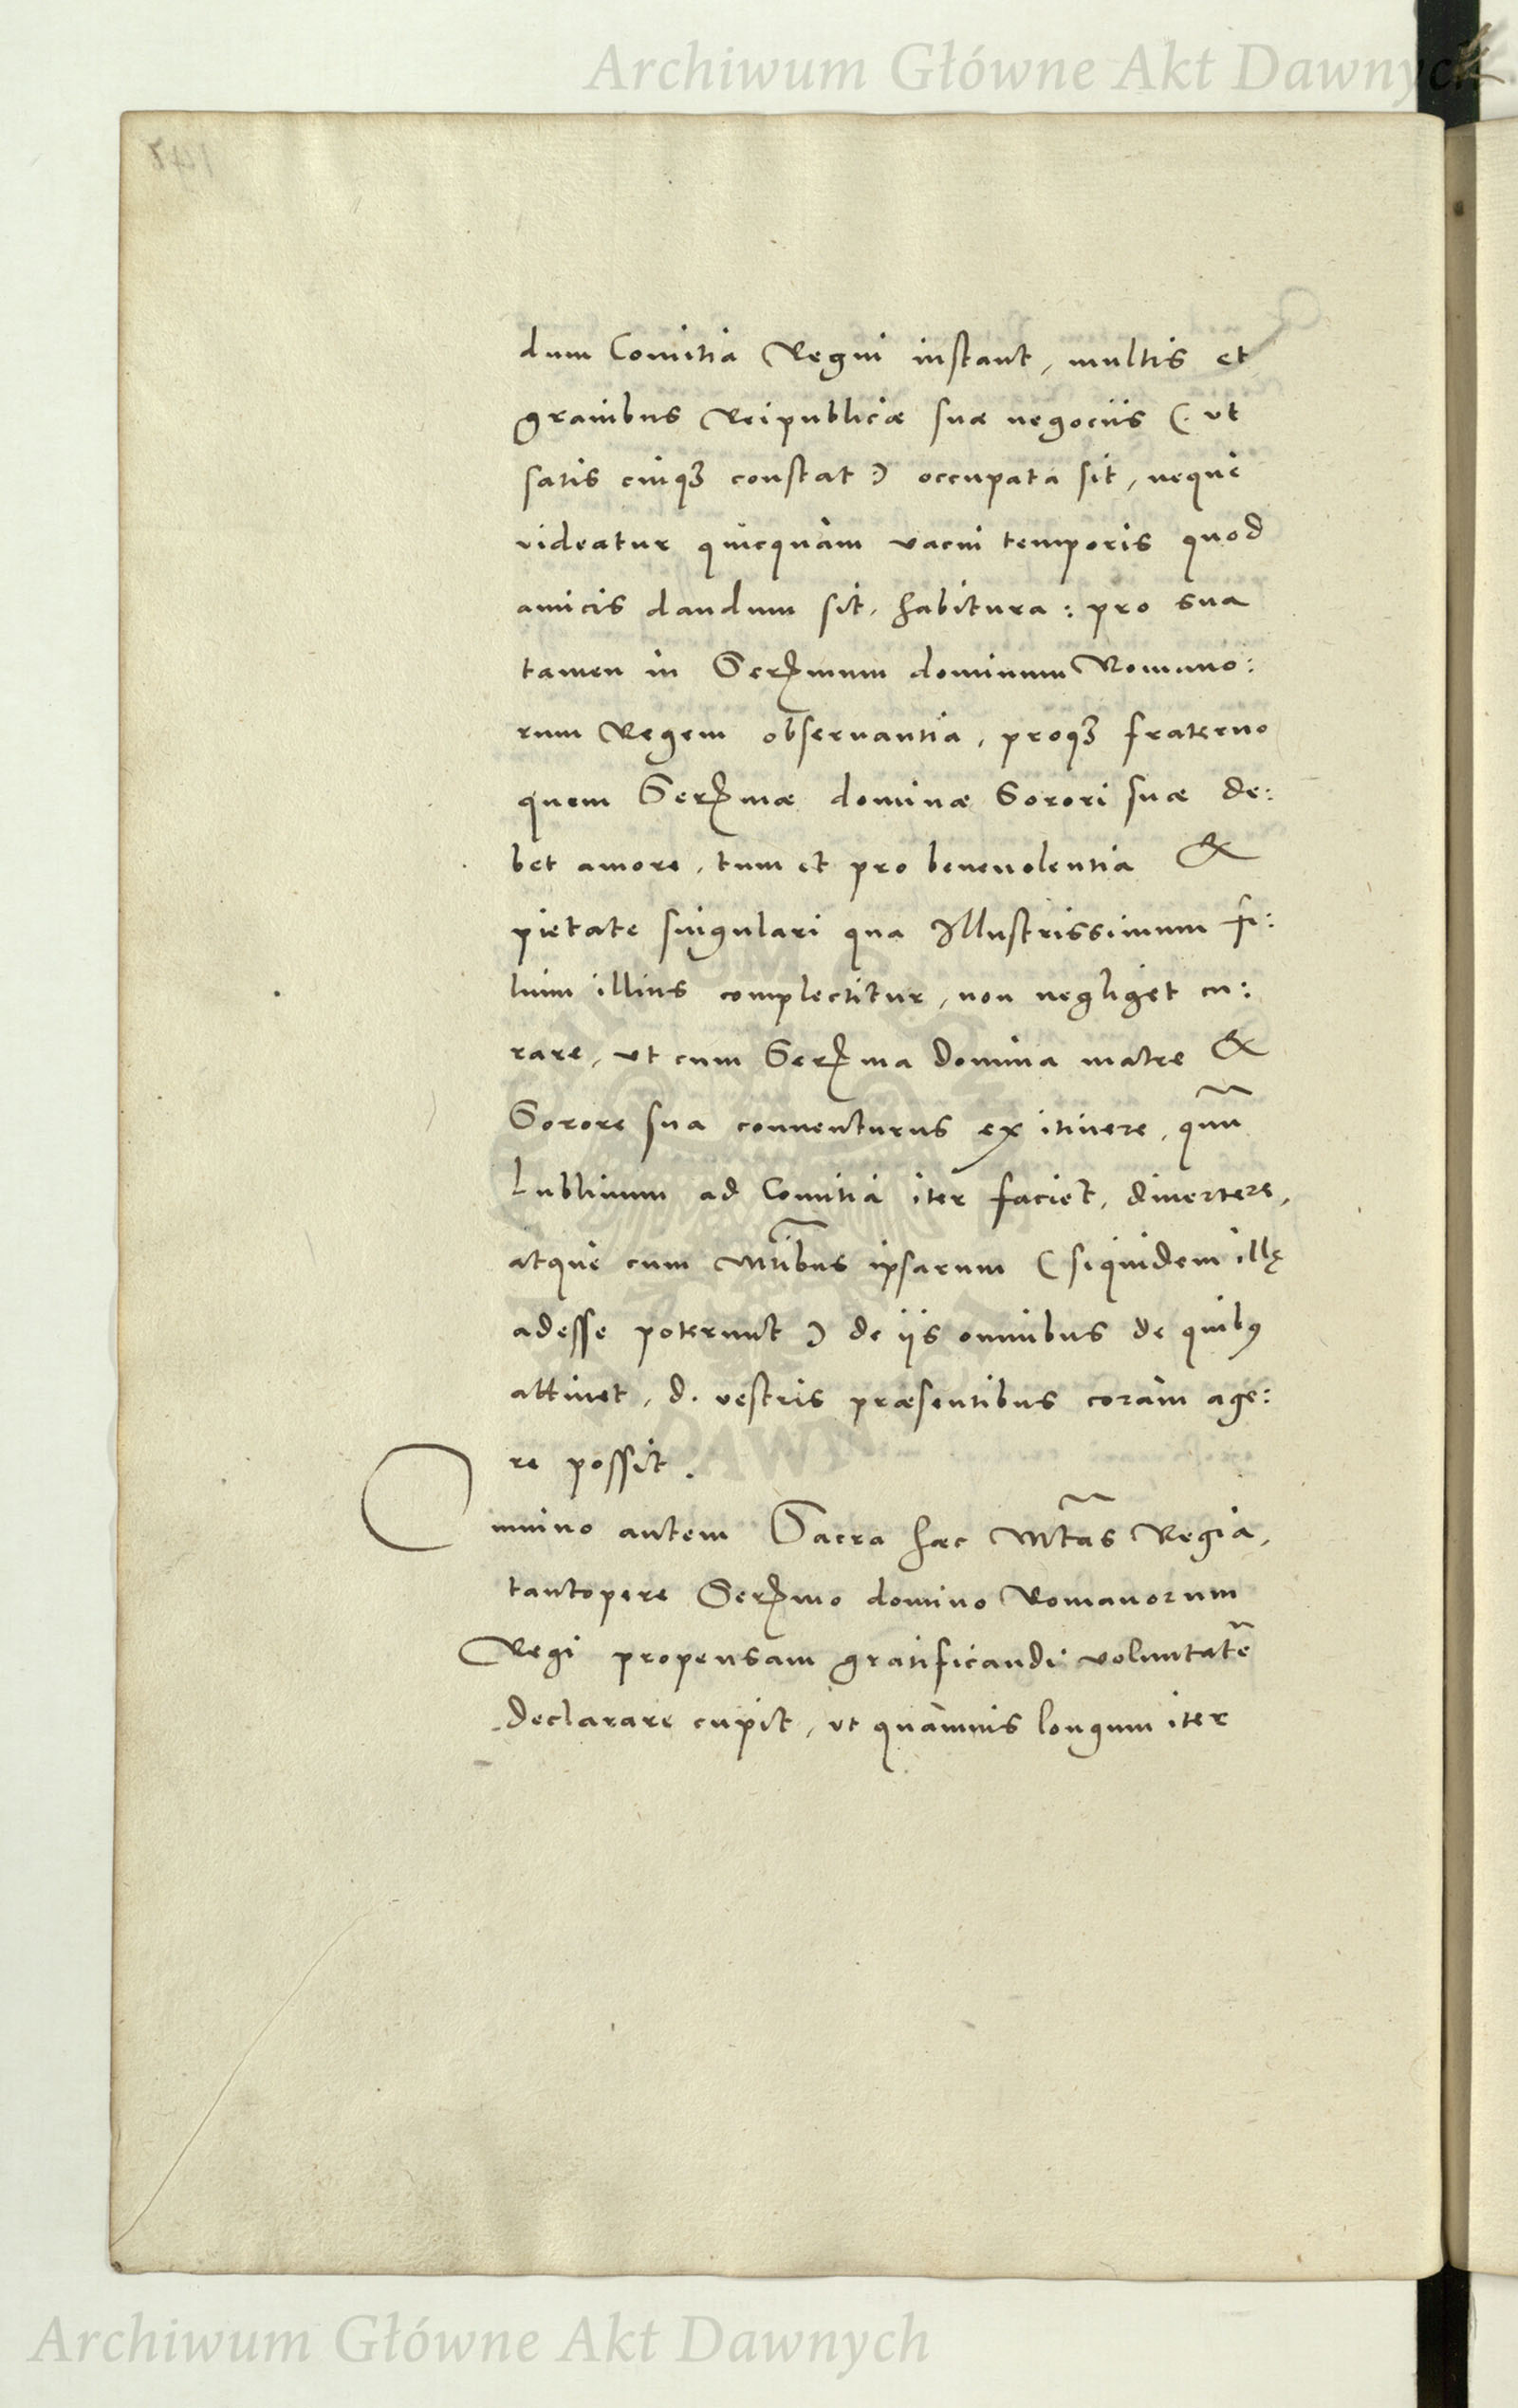 Archiwum Główne Akt Dawnych
dum Comitia Regni instant, multis et
grauibus Reipublicæ suæ negociis (. vt
satis cuiqꝫ constat ) occupata sit, neque
videatur quicquàm vacui temporis quod
amicis dandum sit, habitura : pro sua
tamen in Serꝫmum dominum Romano:
rum Regem obseruantia, proqꝫ fraterno
quem Serꝫmæ dominæ Sorori suæ de:
bet amore, tum et pro beneuolentia &
pietate singulari qua Illustrissimum fi:
lium illius complectitur, non negliget cu:
rare, vt cum Serꝫma Domina matre &
Sorore sua conuenturus ex itinere, qūū
Lublinum ad Comitia iter faciet, diuertere,
atque cum Mtībus ipsarum ( siquidem illę
adesse poterunt ) de iis omnibus de quibꝰ
attinet, d. vestris præsentibus coràm age:
re possit.
Omnino autem Sacra hæc Mtās Regia,
tantopere Serꝫmo domino Romanorum
Regi propensam gratificandi voluntatē
declarare cupit, vt quàmuis longum iter
Archiwum Główne Akt Dawnych